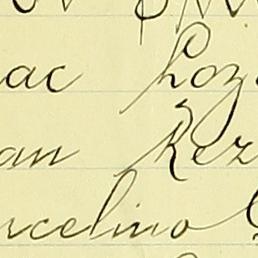 ac Loz
an Rez
rcelino